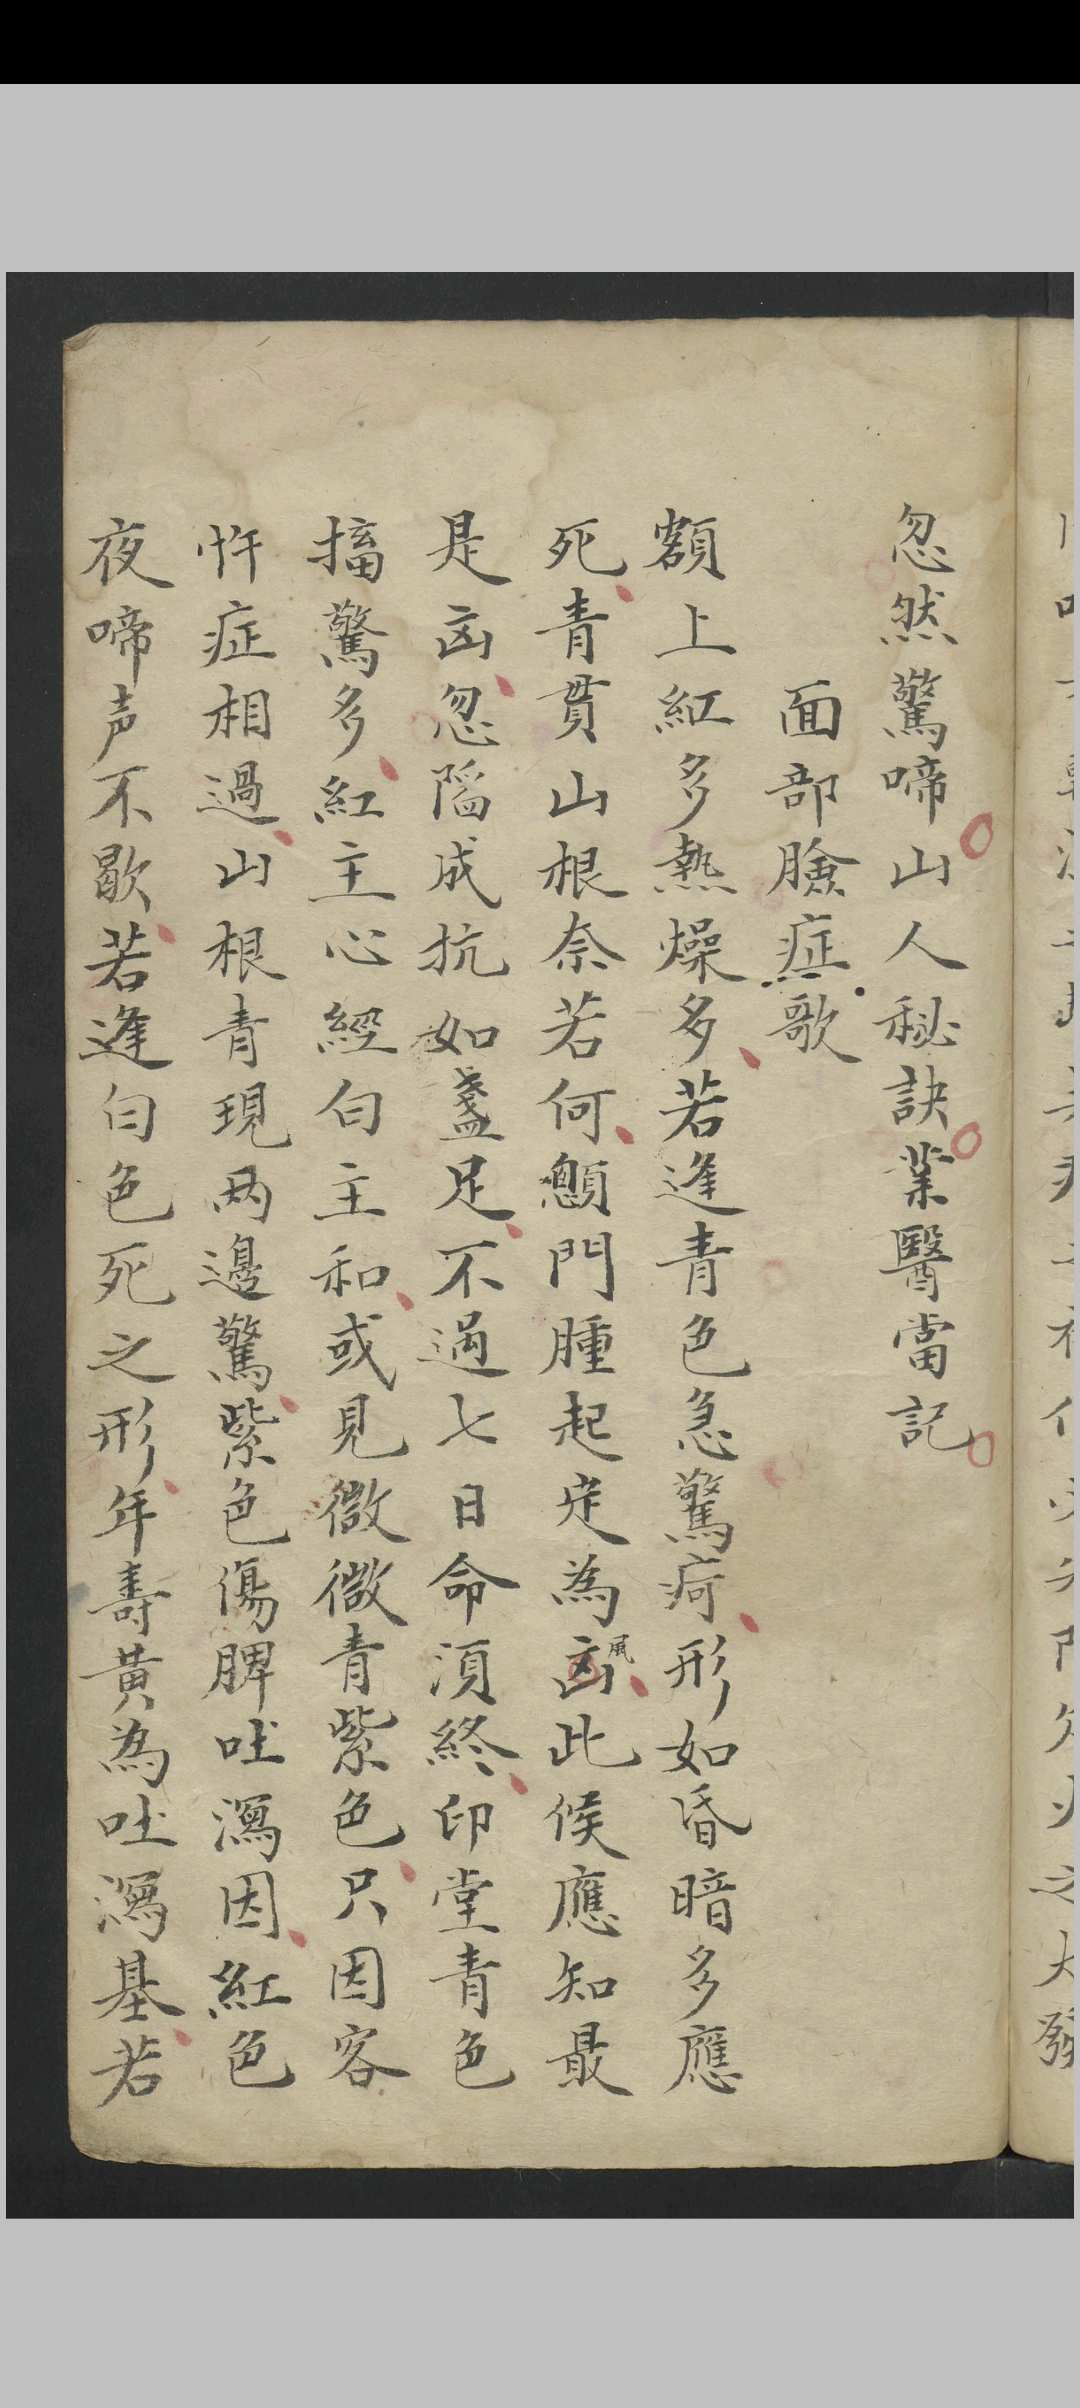 忽然驚啼山人秘訣業醫當記
面部臉症歌
額上紅多多熱燥多多若逢青色急驚疴形如昏暗多應
死青貫山根奈若何顖門腫起定為風此候應知最
是凶忽陷成坑如盞足不過七日命須終印堂青色
搐驚多紅主心經白主和或見微微青紫色只因客
忤症相過山根青現两邊驚紫色傷脾吐瀉因紅色
夜啼声不歇若逢白色死之形年壽黃為吐瀉基若